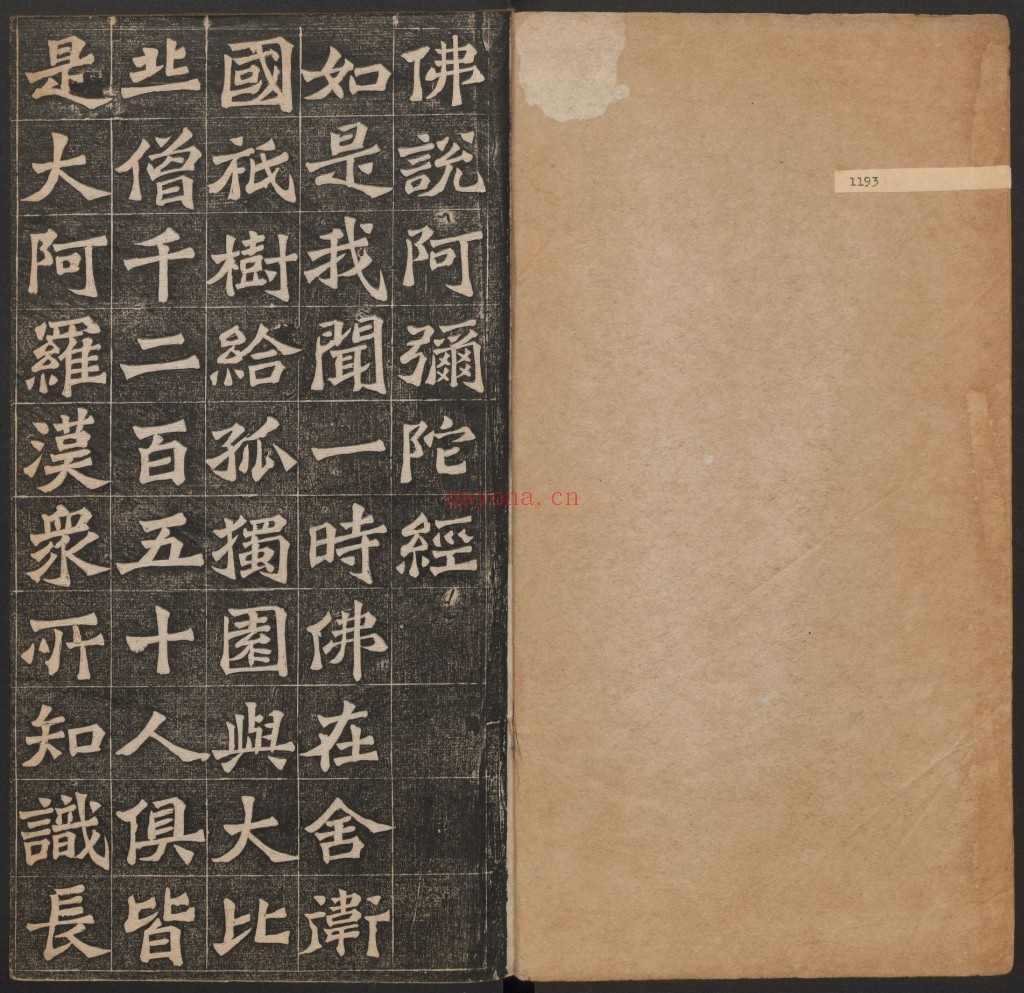 1193
佛說阿彌陀經
如是我聞一時佛在舍衛
國祇樹給孤獨園與大比
丘僧千二百五十人俱皆
是大阿羅漢衆所知識長
nayona.cn